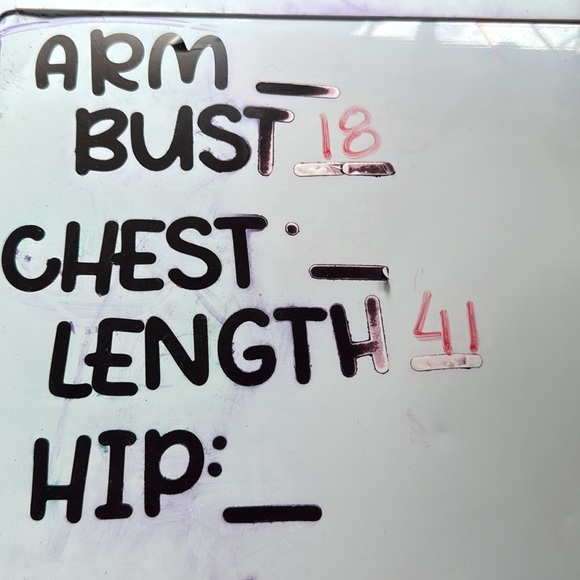 ARM _
BUST 18
CHEST: _
LENGTH 41
HIP: _